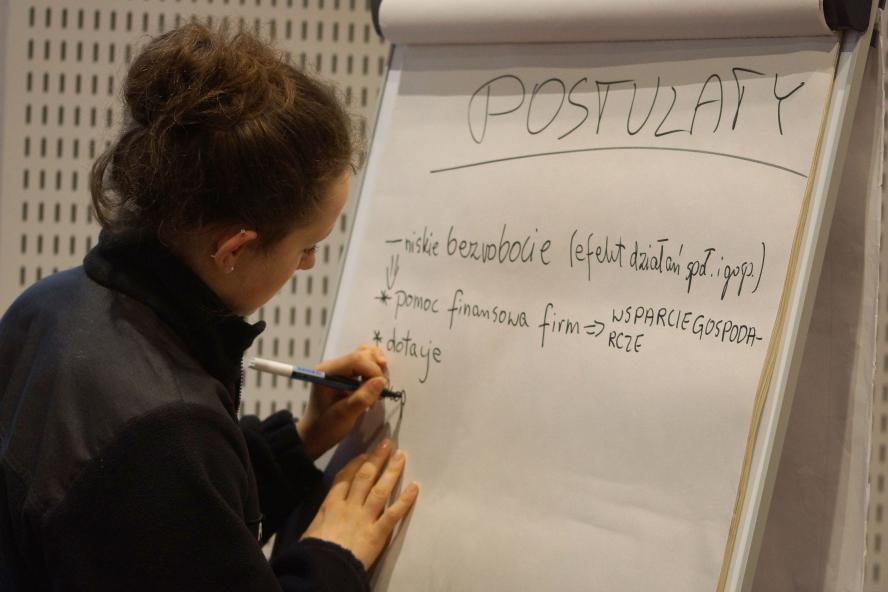 POSTULATY
– niskie bezrobocie (efekt działań społ. i gosp.)
* pomoc finansowa firm ⇒ WSPARCIE GOSPODA-
RCZE
* dotacje